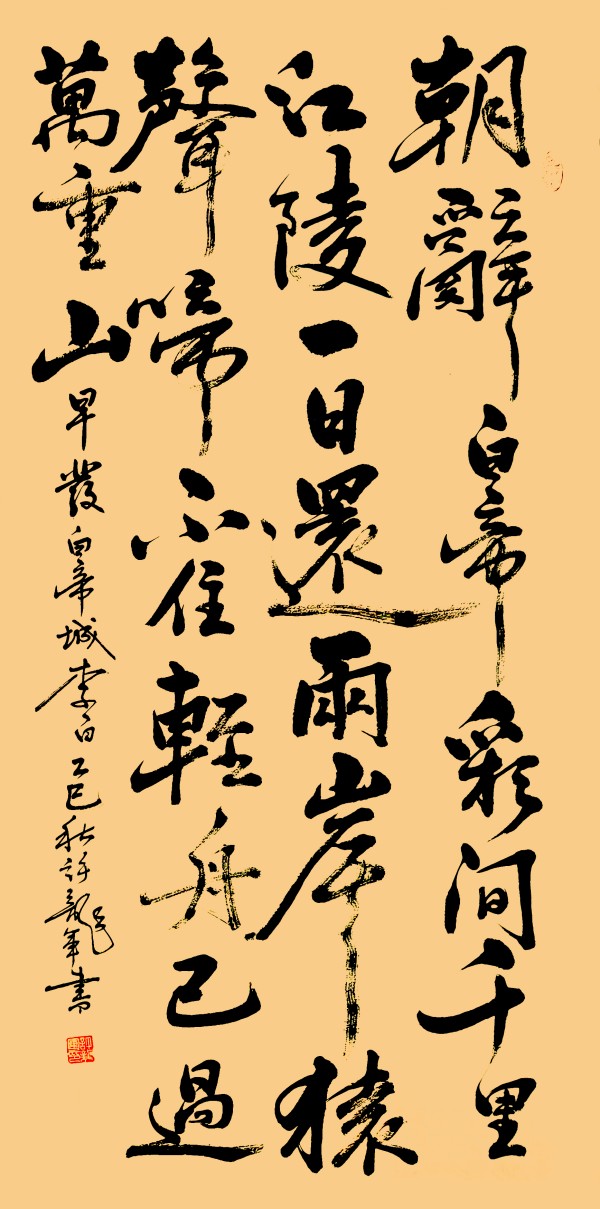 朝辭白帝彩间千里
江陵一日還兩岸猿
聲啼不住輕舟已過
萬重山早發白帝城李白乙巳秋許龍年書